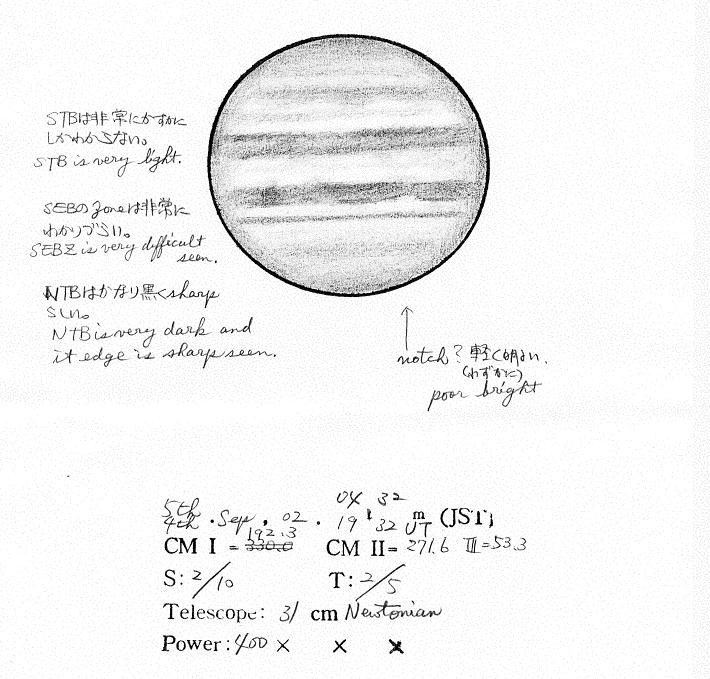 STBは非常にかすかに
しかわからない。
STB is very light.
SEBのZoneは非常に
わかりづらい。
SEBZ is very difficult
seen.
NTBはかなり黒くsharp
らしい。
NTB is very dark and
it edge is sharp seen.
notch? 軽く明るい.
(わずかに)
poor bright
04 32
5th
4th . Sep , 02 . 19 h 32 m UT (JST)
192.3
CM I = 330.0 CM II= 271.6 III=53.3
S: 2/10 T: 2/5
Telescope: 31 cm Newtonian
Power: 400 × × ×